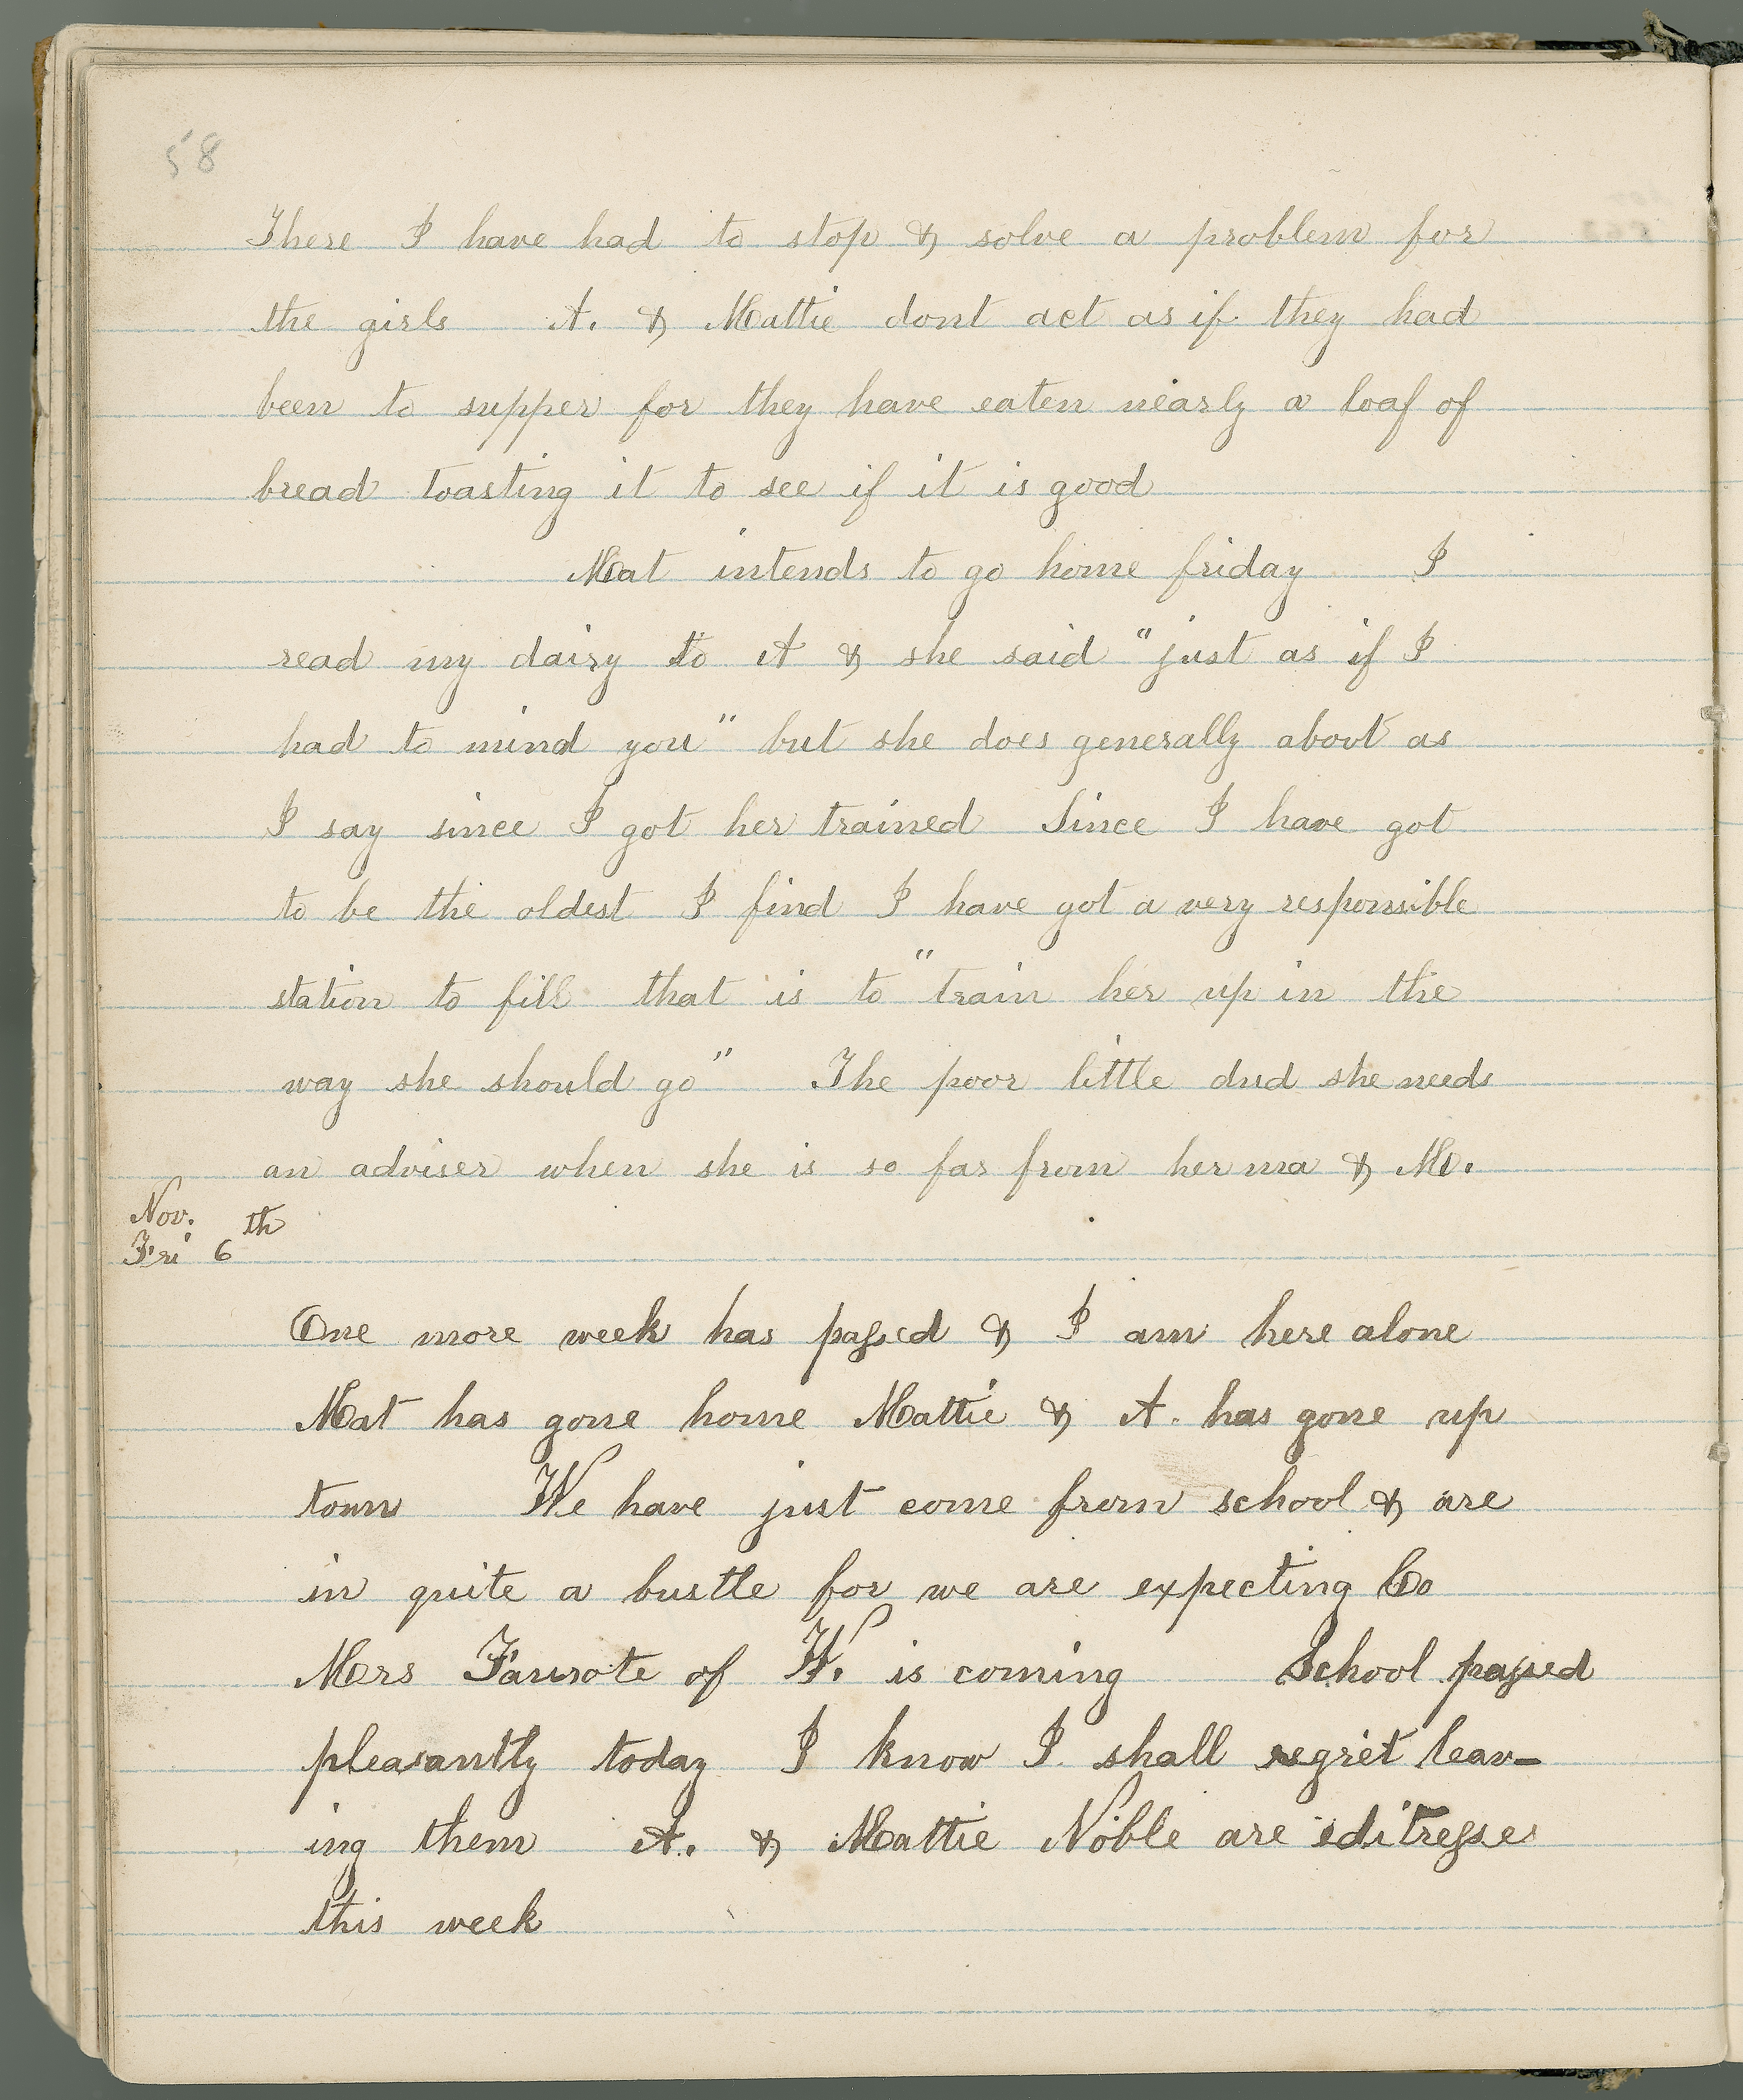 58
There I have had to stop & solve a problem for
the girls A. & Mattie dont act as if they had
been to supper for they have eaten nearly a loaf of
bread toasting it to see if it is good
Mat intends to go home friday I
read my dairy to A & she said "just as if I
had to mind you" but she does generally about as
I say since I got her trained Since I have got
to be the oldest I find I have got a very responsible
station to fill that is to "train her up in the
way she should go" The poor little dud she needs
an adviser when she is so far from her ma & M.
Nov.
Fri 6th
One more week has passed & I am here alone
Mat has gone home Mattie & A. has gone up
town We have just come from school & are
in quite a bustle for we are expecting Co
Mrs Faurote of W. is coming School passed
pleasantly today I know I shall regret leav-
ing them A. & Mattie Noble are editresses
this week